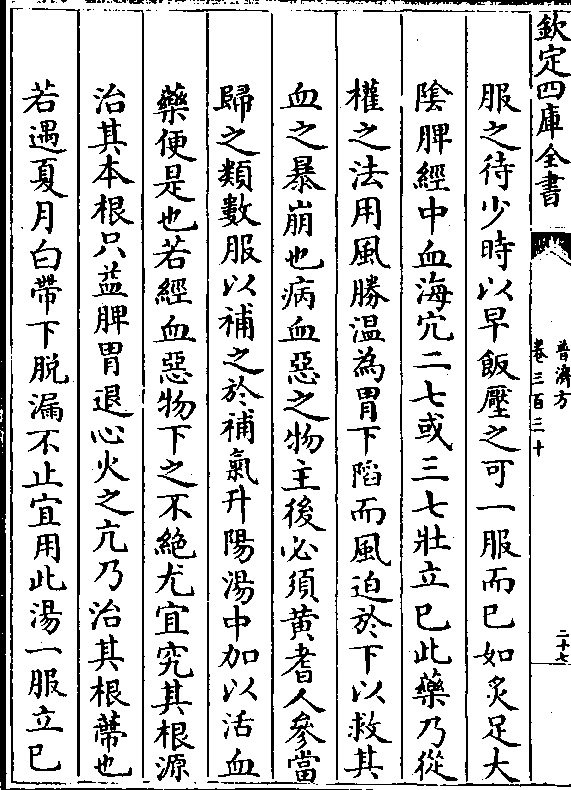 欽定四庫全書
普濟方
卷三百三十
二十七
服之待少時以早飯壓之可一服而已如炙足大
陰脾經中血海穴二七或三七壯立已此藥乃從
權之法用風勝温為胃下䧟而風迫於下以救其
血之暴崩也病血惡之物主後必須黄耆人參當
歸之類數服以補之於補氣升陽湯中加以活血
藥便是也若經血惡物下之不絶尤宜究其根源
治其本根只益脾胃退心火之亢乃治其根蔕也
若遇夏月白帶下脱漏不止宜用此湯一服立已